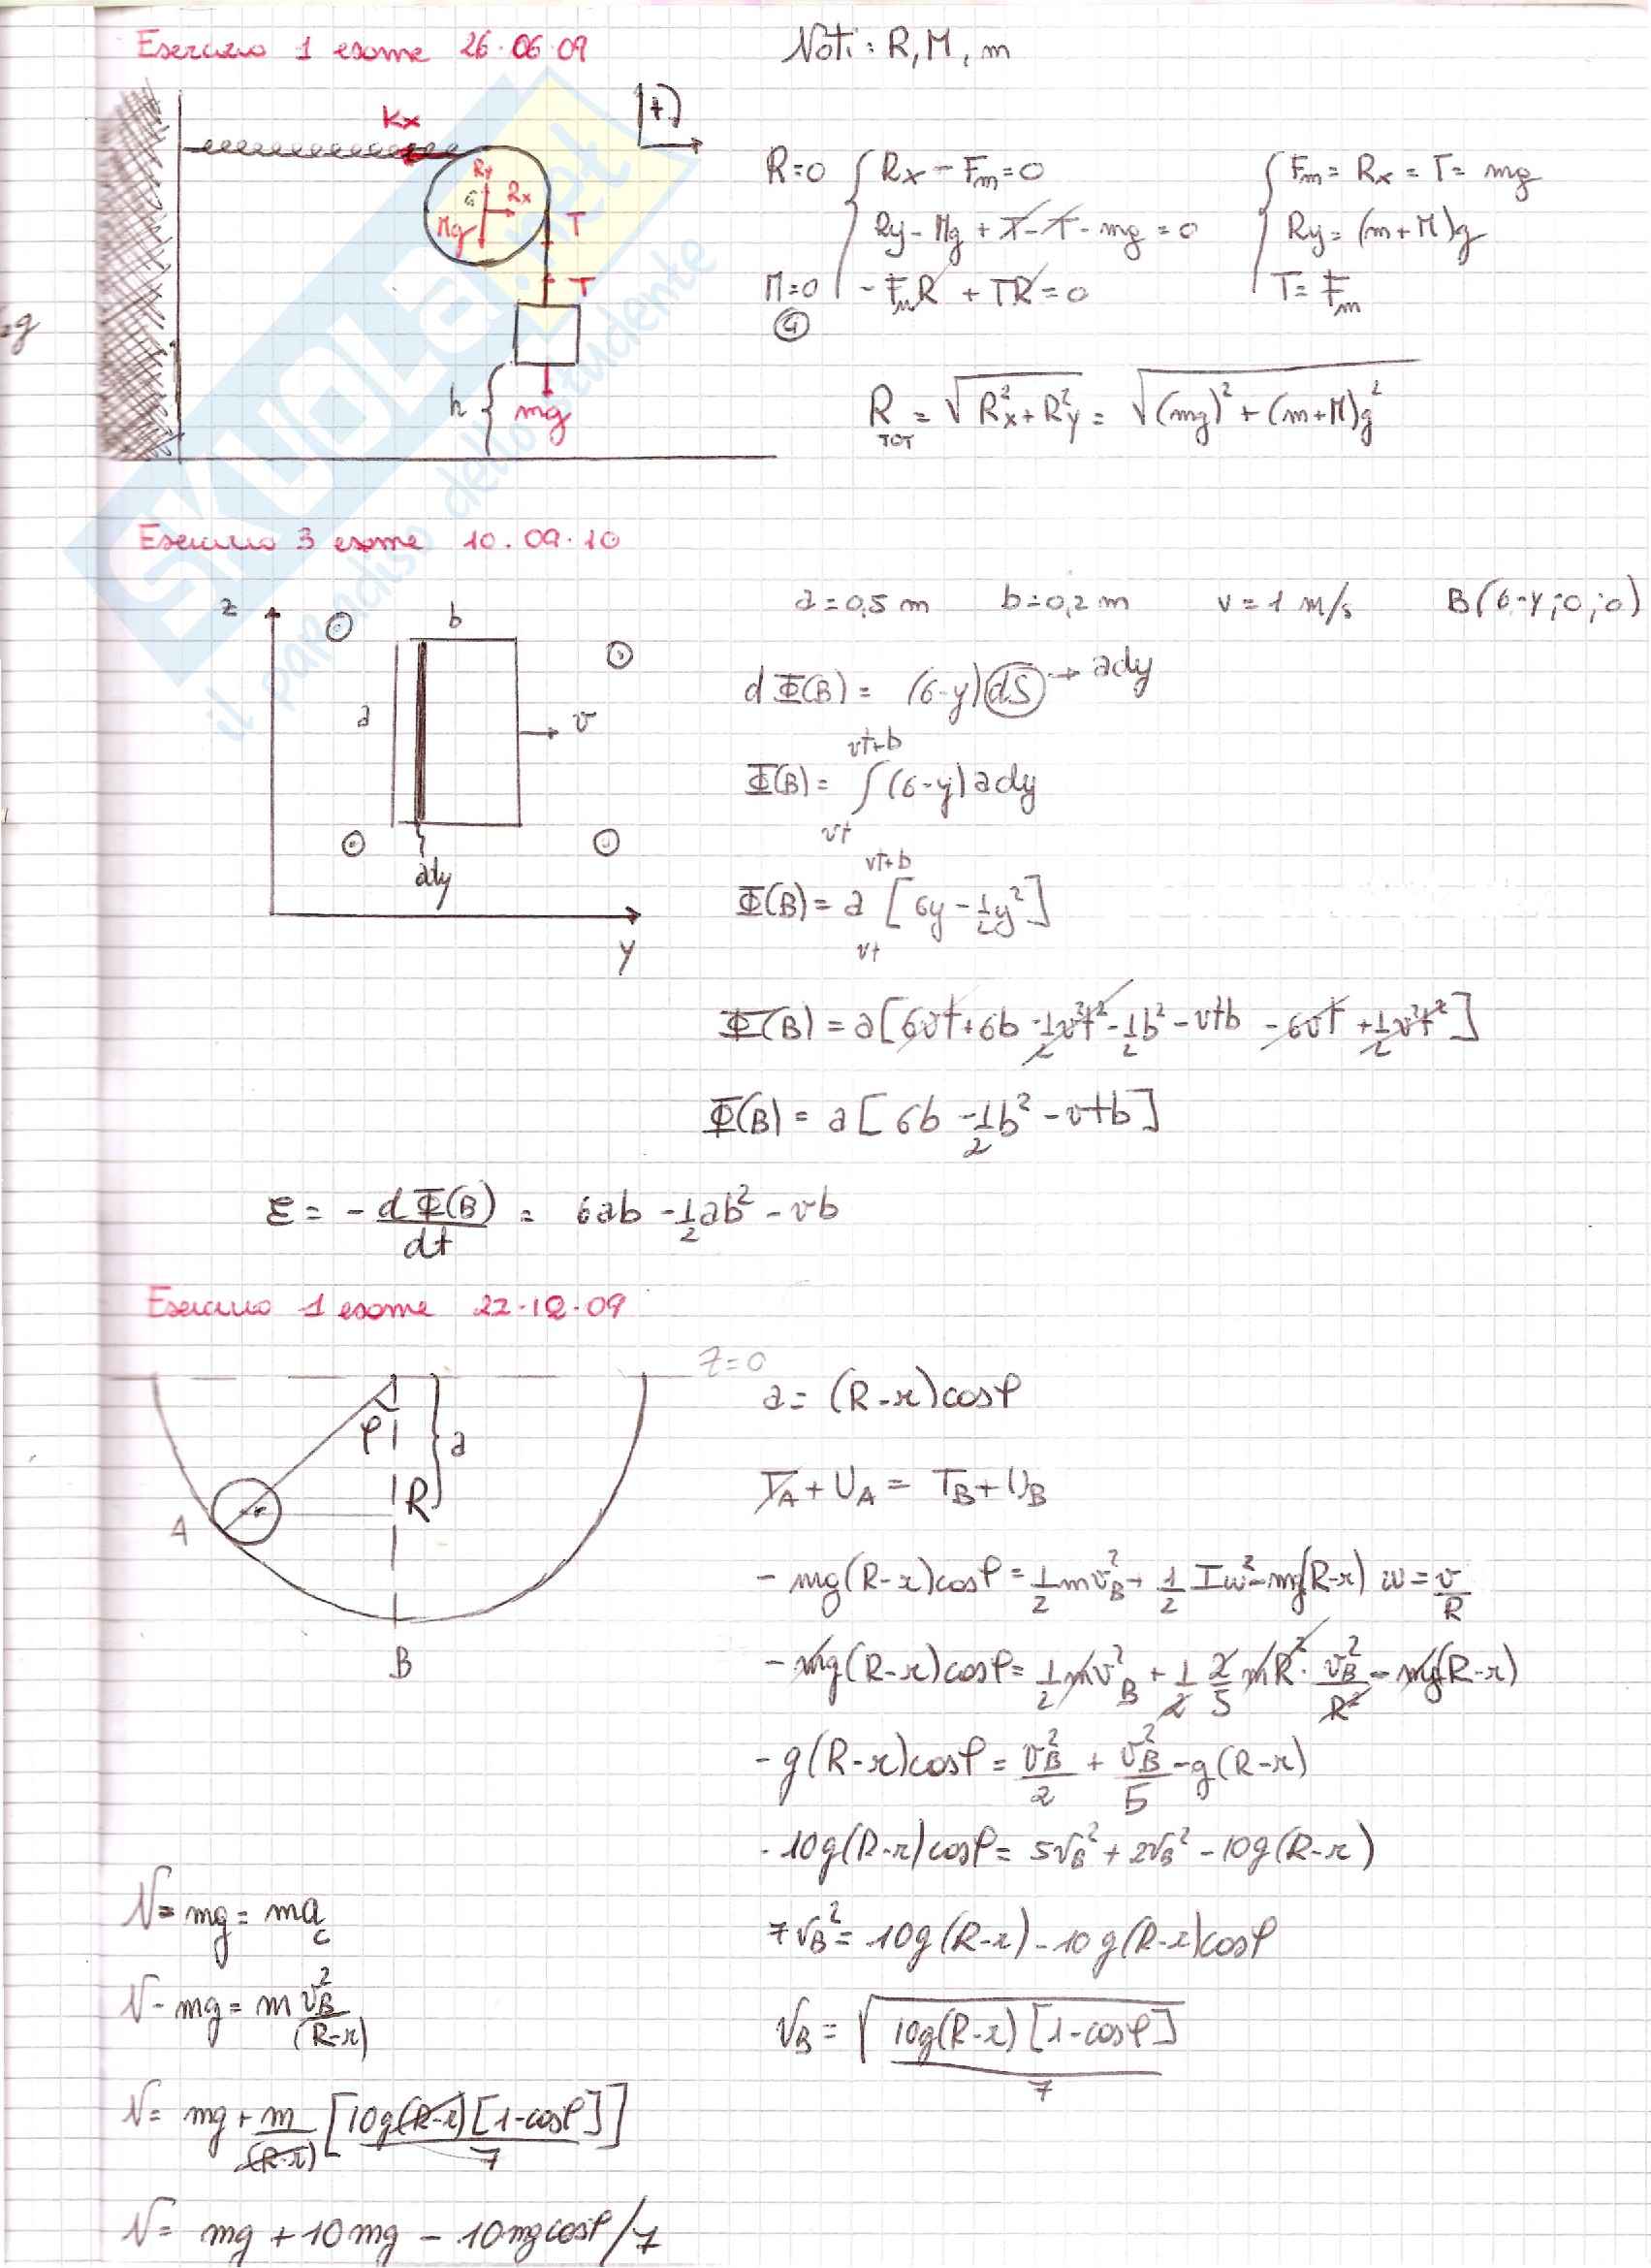 Esercizio 1 esame 26.06.09
Noti: R, M, m
Kx
Ry
G Rx
Mg
T
T
h
mg
(+)
R=0 { Rx - Fm = 0
Ry - Mg + T - T - mg = 0
M=0 - FmR + TR = 0
(G)
{ Fm = Rx = T = mg
Ry = (m+M)g
T = Fm
R_TOT = √(Rx² + Ry²) = √((mg)² + (m+M)g²)
Esercizio 3 esame 10.09.10
z
b
a
v
ady
y
a = 0,5 m b = 0,2 m v = 1 m/s B(6-y; 0; 0)
dΦ(B) = (6-y) dS → ady
Φ(B) = ∫_{vt}^{vt+b} (6-y) ady
Φ(B) = a [6y - 1/2 y²]_{vt}^{vt+b}
Φ(B) = a[6vt + 6b - 1/2 v²t² - 1/2 b² - vtb - 6vt + 1/2 v²t²]
Φ(B) = a[6b - 1/2 b² - vtb]
ε = - dΦ(B)/dt = 6ab - 1/2 ab² - vb
Esercizio 1 esame 22.12.09
z=0
φ
a
R
r
A
B
a = (R-r)cosφ
T_A + U_A = T_B + U_B
- mg(R-r)cosφ = 1/2 mv_B² + 1/2 Iω² - mg(R-r) ω = v/R
- mg(R-r)cosφ = 1/2 mv_B² + 1/2 2/5 mR² · v_B²/R² - mg(R-r)
- g(R-r)cosφ = v_B²/2 + v_B²/5 - g(R-r)
- 10g(R-r)cosφ = 5v_B² + 2v_B² - 10g(R-r)
7v_B² = 10g(R-r) - 10g(R-r)cosφ
v_B = √(10g(R-r)[1-cosφ]/7)
N = mg = ma_c
N - mg = m v_B²/(R-r)
N = mg + m/(R-r) [10g(R-r)[1-cosφ]/7]
N = mg + 10mg - 10mgcosφ/7
SKUOLA.net
il paradiso dello studente